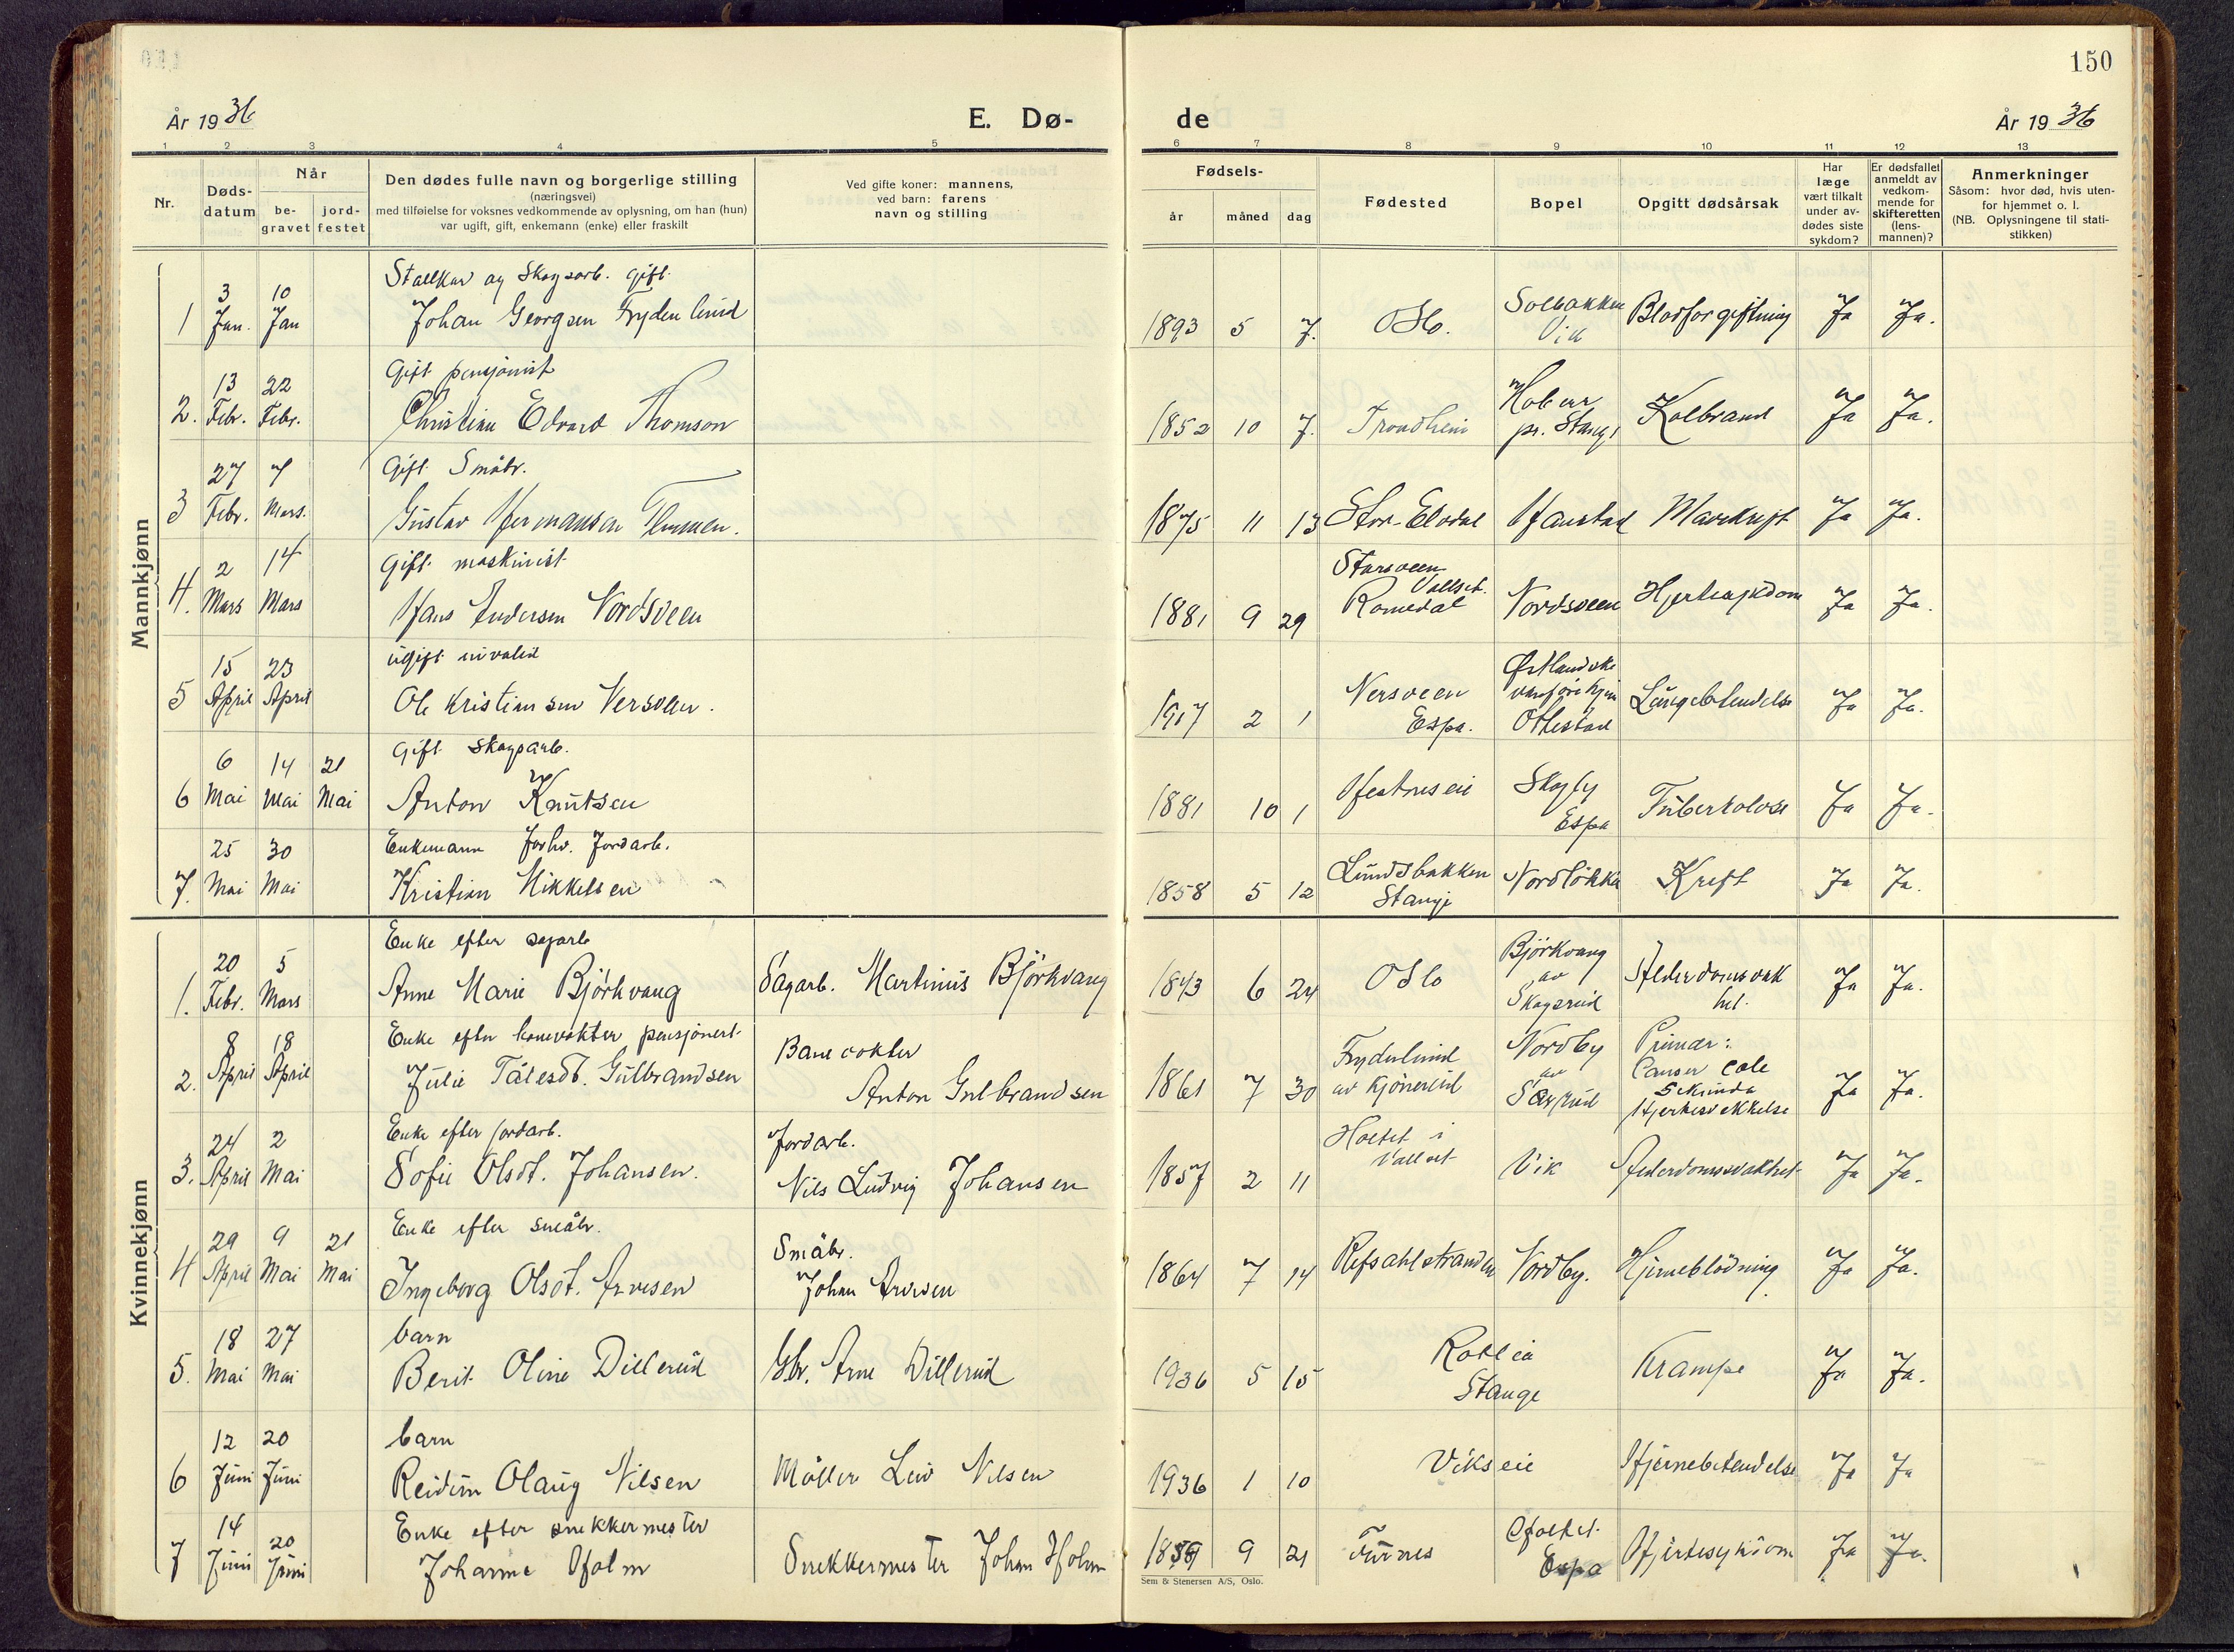 150
År 1936
E. Dø-
de
År 1936
1 2 3 4 5 6 7 8 9 10 11 12 13
Nr.
Døds-
datum
Når
be-
gravet
jord-
festet
Den dødes fulle navn og borgerlige stilling
(næringsvei)
med tilføielse for voksnes vedkommende av oplysning, om han (hun)
var ugift, gift, enkemann (enke) eller fraskilt
Ved gifte koner: mannens,
ved barn: farens
navn og stilling
Fødsels-
år måned dag
Fødested
Bopel
Opgitt dødsårsak
Har
læge
vært tilkalt
under av-
dødes siste
sykdom?
Er dødsfallet
anmeldt av
vedkom-
mende for
skifteretten
(lens-
mannen)?
Anmerkninger
Såsom: hvor død, hvis uten-
for hjemmet o. l.
(NB. Oplysningene til stati-
stikken)
Mannkjønn
Stallkar og Skogsarb. gift
1 3 Jan. 10 Jan Johan Georgsen Frydenlund 1893 5 7. Oslo. Solbakken Vik Blodforgiftning Ja Ja.
Gift pensjonist
2. 13 Febr. 22 Febr. Christian Edvard Thomson 1852 10 7. Trondheim pr. Stange Kolbrand Ja Ja.
Gift Småbr.
3 27 Febr. 7 Mars. Gustav Hermansen 1875 11 13 Stor-Elvdal Hanstad Mavekreft Ja Ja.
Gift maskinist
4. 2 Mars 14 Mars Hans Andersen Nordsveen 1881 9 29 Vallset. Romedal Nordsveen Hjertesykdom Ja Ja.
Ugift invalid
5 15 April 23 April Ole Kristiansen Nersveen. 1917 2 1 Nersveen Espa. Østlandske vanførehjem Ottestad Lungebetendelse Ja Ja.
Gift skogsarb.
6 6 Mai 14 Mai 21 Mai Anton Knutsen 1881 10 1 Skogly Espa Tuberkolose Ja Ja.
Enkemann forhv. Jordarb.
7. 25 Mai 30 Mai Kristian Mikkelsen 1858 5 12 Lundsbakken Stange Nordløkka Kreft Ja Ja.
Kvinnekjønn
Enke efter sagarb
1. 20 Febr. 5 Mars Anne Marie Björkvang Sagarb. Martinus Björkvang 1843 6 24 Oslo Björkvang av Skogsrud Alderdomssvakhet. Ja Ja.
Enke efter banevokter pensjonert
2. 8 April 18 April Julie Tålesdt. Gulbrandsen Banevokter Anton Gulbrandsen 1861 7 30 Frydenlund av Kjönerud Nordby av Saxrud Primær: Canser Cole Sekunda Hjertesvekkelse Ja Ja.
Enke efter jordarb.
3. 24 April 2 Mai Sofie Olsdt. Johansen. Jordarb. Nils Ludvig Johansen 1857 2 11 Holtet i Vallset Vik Alderdomssvakhet Ja Ja.
Enke efter småbr.
4 29 April 9 Mai 21 Mai Ingeborg Olsdt. Arvesen Småbr. Johan Arvesen 1864 7 14 Refsahlstranden Nordby. Hjerneblödning Ja Ja.
barn
5. 18 Mai 27 Mai Berit Oline Dillerud Gbr. Arne Dillerud 1936 5 15 Rotlia Stange Krampe Ja Ja.
barn
6 12 Juni 20 Juni Reidun Olaug Nilsen Möller Leiv Nilsen 1936 1 10 Vikseie Hjernebetendelse Ja Ja
Enke efter snekkermester
7 14 Juni 20 Juni Johanne Holm Snekkermester Johan Holm 1859 9 21 Furnes Holtet Espa Hjertesykdom Ja Ja.
Sem & Stenersen A/S, Oslo.